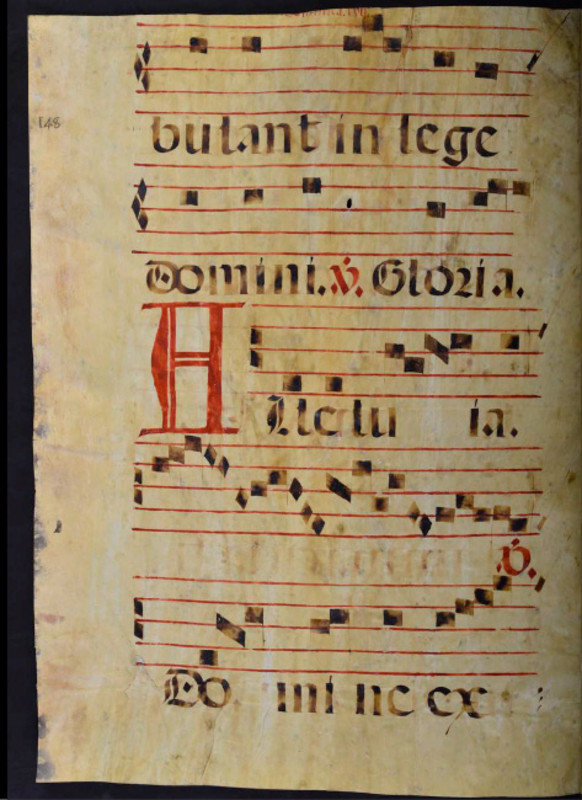 148
bulant in lege
Domini. V. Gloria.
Allelu ia.
V.
Do mi ne ex